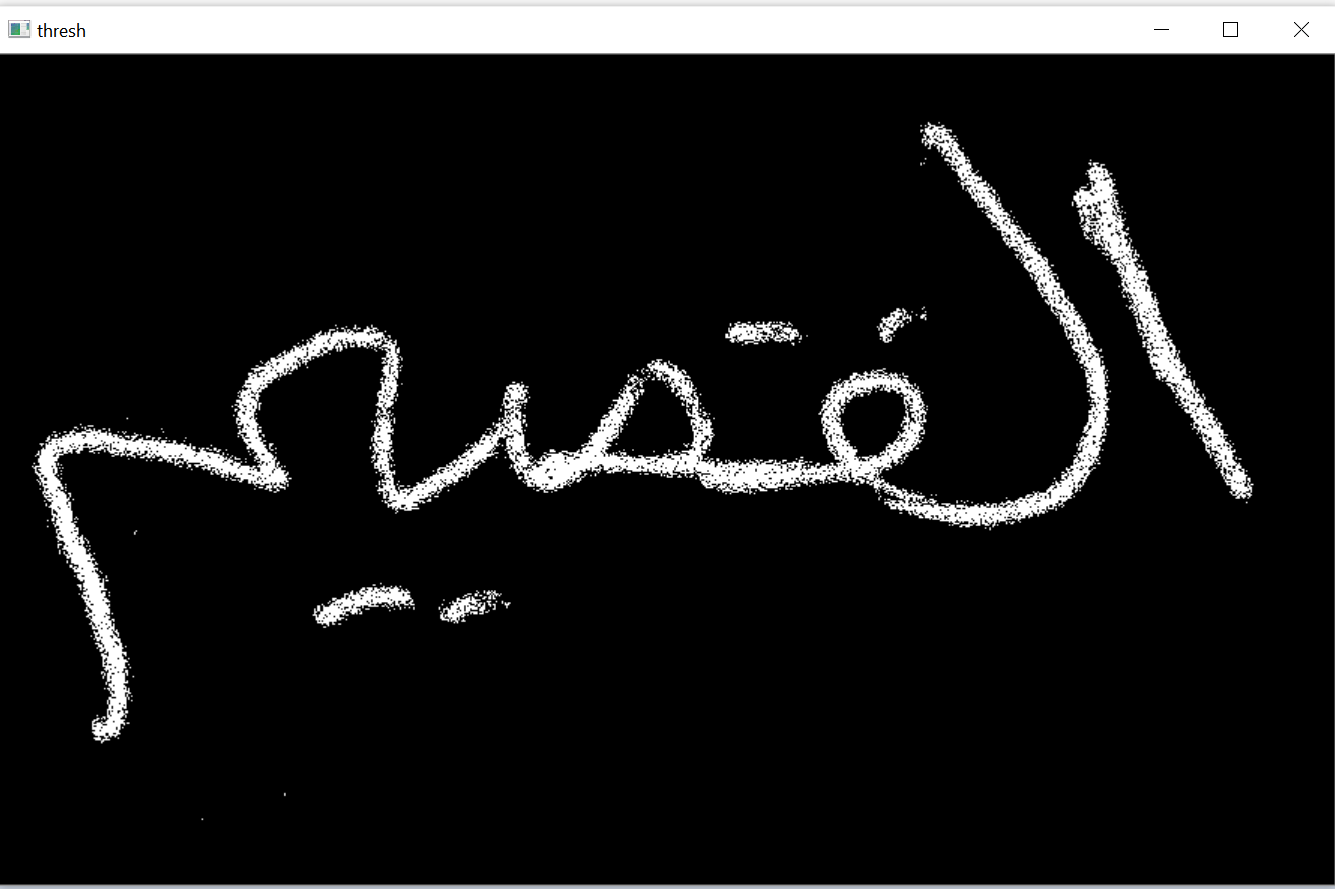 thresh
القصيم